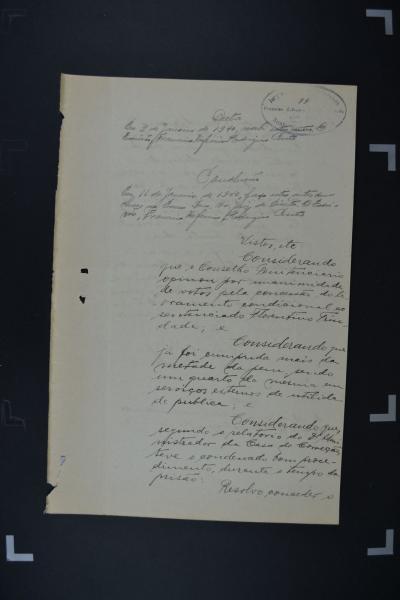 Data
Em 8 de Janeiro de 1940, recebi estes autos. O
Escrivão, Francisco
Conclusão
Em, 16 de Janeiro de 1940, faço estes autos con
clusos ao Exmo. Snr. Dr. Juiz de Direito. O Escri
vão, Francisco
Vistos, etc
Considerando
que o Conselho Penitenciario
opinou por unanimidade
de votos pela concessão do li
vramento condicional ao
sentenciado Florentino Trin
dade; e
Considerando que
já foi cumprida mais da
metade da pena sendo
um quarto da mesma em
serviços externos de utilida
de publica; e
Considerando que,
segundo o relatorio do Dr. Admi
nistrador da Casa de Correção,
teve o condenado bom proce
dimento, durante o tempo da
prisão:
Resolvo conceder o